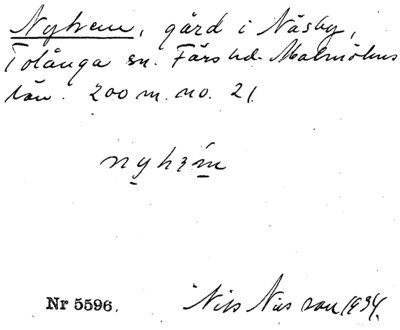 Nyhem, gård i Näsby,
Tolånga sn. Färs hd. Malmöhus
län. 200 m. no. 21.
nyhem
Nr 5596.
Nils Nilsson 1934.